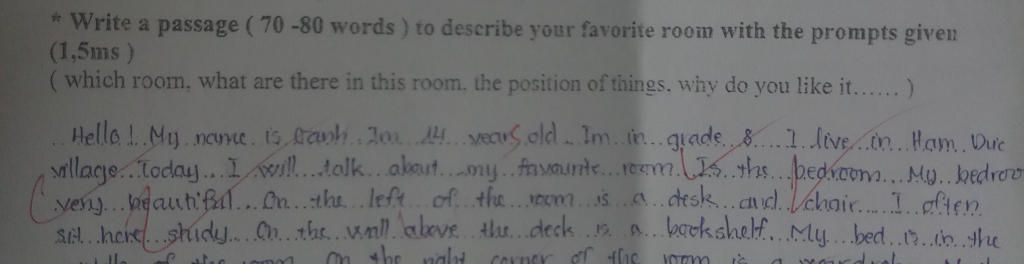 * Write a passage ( 70 -80 words ) to describe your favorite room with the prompts given
(1,5ms )
( which room, what are there in this room, the position of things, why do you like it...... )
Hello! My name is Im 14 years old. Im in grade 8. I live in Ham Duc
village. Today I will talk about my favourite room. Is the bedroom. My bedroo
very beautiful. On the left of the room is a desk and chair. I often
sit here study. On the wall above the deck is a bookshelf. My bed is in the
of the room On the right corner of the room is a